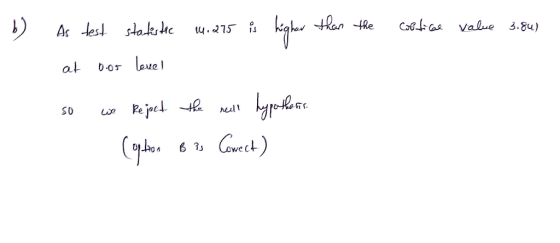 b) As test statistic 14.275 is higher than the critical value 3.841
at 0.05 level
so we Reject the null hypothesis.
(option B is Correct)